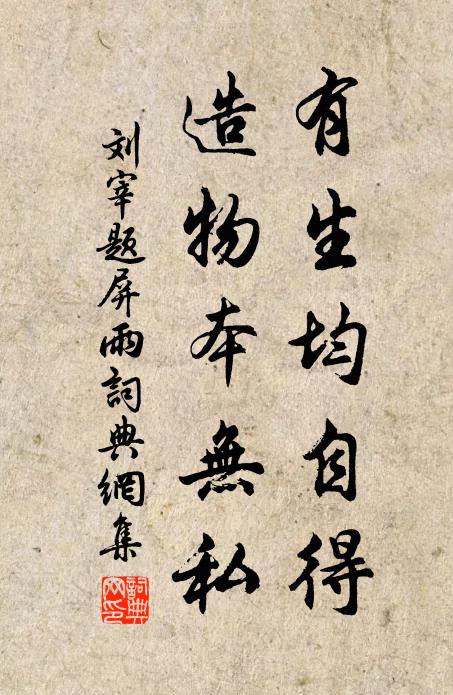 有生均自得
造物本無私
刘宰題屏雨詞典網集
詞典網印